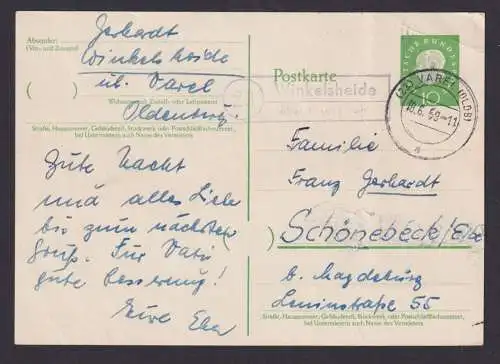 Absender:
Gerhardt
(Vor- und Zuname)
Winkelsheide
üb. Varel
( )
Wohnort, auch Zustell- oder Leitpostamt
Oldenburg
Straße, Hausnummer, Gebäudeteil, Stockwerk oder Postschließfachnummer,
bei Untermietern auch Name des Vermieters
Gute Nacht
und alles Liebe
bis zum nächsten
Gruß. Für Vati
gute Besserung!
Eure
Postkarte
Winkelsheide
DEUTSCHE BUNDESPOST
10
(23) VAREL (OLDB)
a
Familie
Franz Gerhardt
) Schönebeck/Elbe
b. Magdeburg
Leninstraße 55
Straße, Hausnummer, Gebäudeteil, Stockwerk oder Postschließfachnummer,
bei Untermietern auch Name des Vermieters